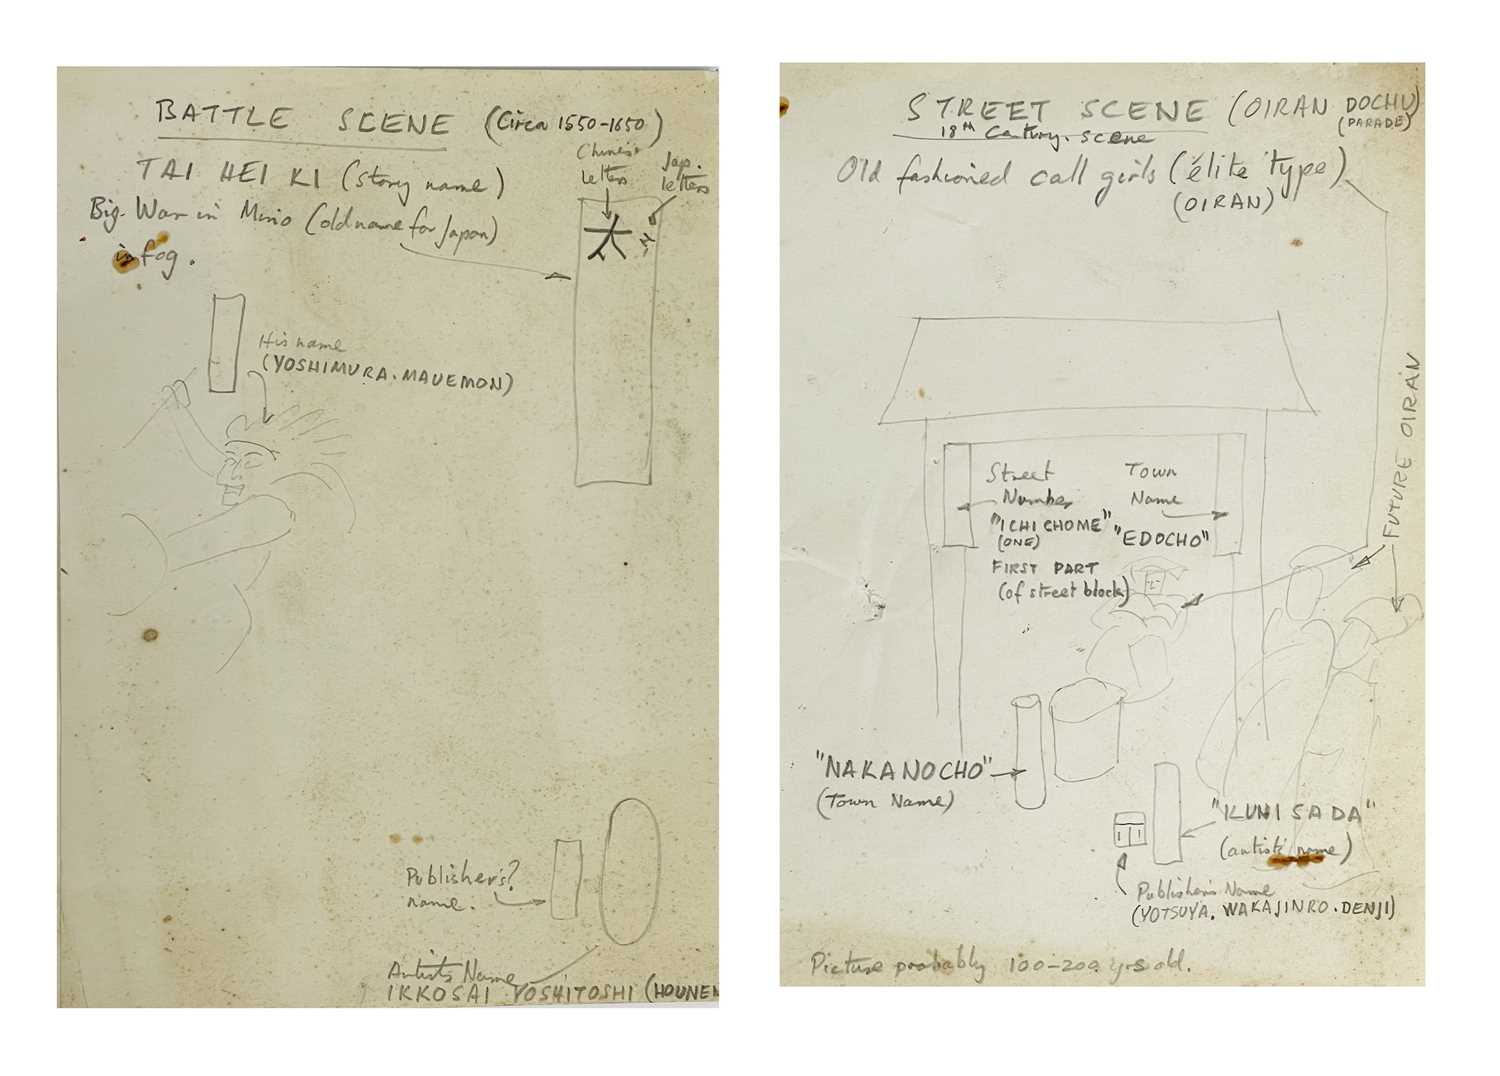 BATTLE SCENE (Circa 1550-1650)
TAI HEI KI (story name)
Big War in Mino (old name for Japan)
in fog.
Chinese letters
Jap. letters
太
His name
(YOSHIMURA. MAUEMON)
Publisher's?
name.
Artists Name
IKKOSAI YOSHITOSHI (HOUNEN
STREET SCENE (OIRAN DOCHU
(PARADE)
18TH Century. scene
Old fashioned call girls (élite type)
(OIRAN)
FUTURE OIRAN
Street
Number
"ICHI CHOME"
(ONE)
FIRST PART
(of street block)
Town
Name
"EDOCHO"
"NAKANOCHO"
(Town Name)
"KUNISADA"
(artists name)
Publishers Name
(YOTSUYA. WAKAJINRO. DENJI)
Picture probably 100-200 yrs old.